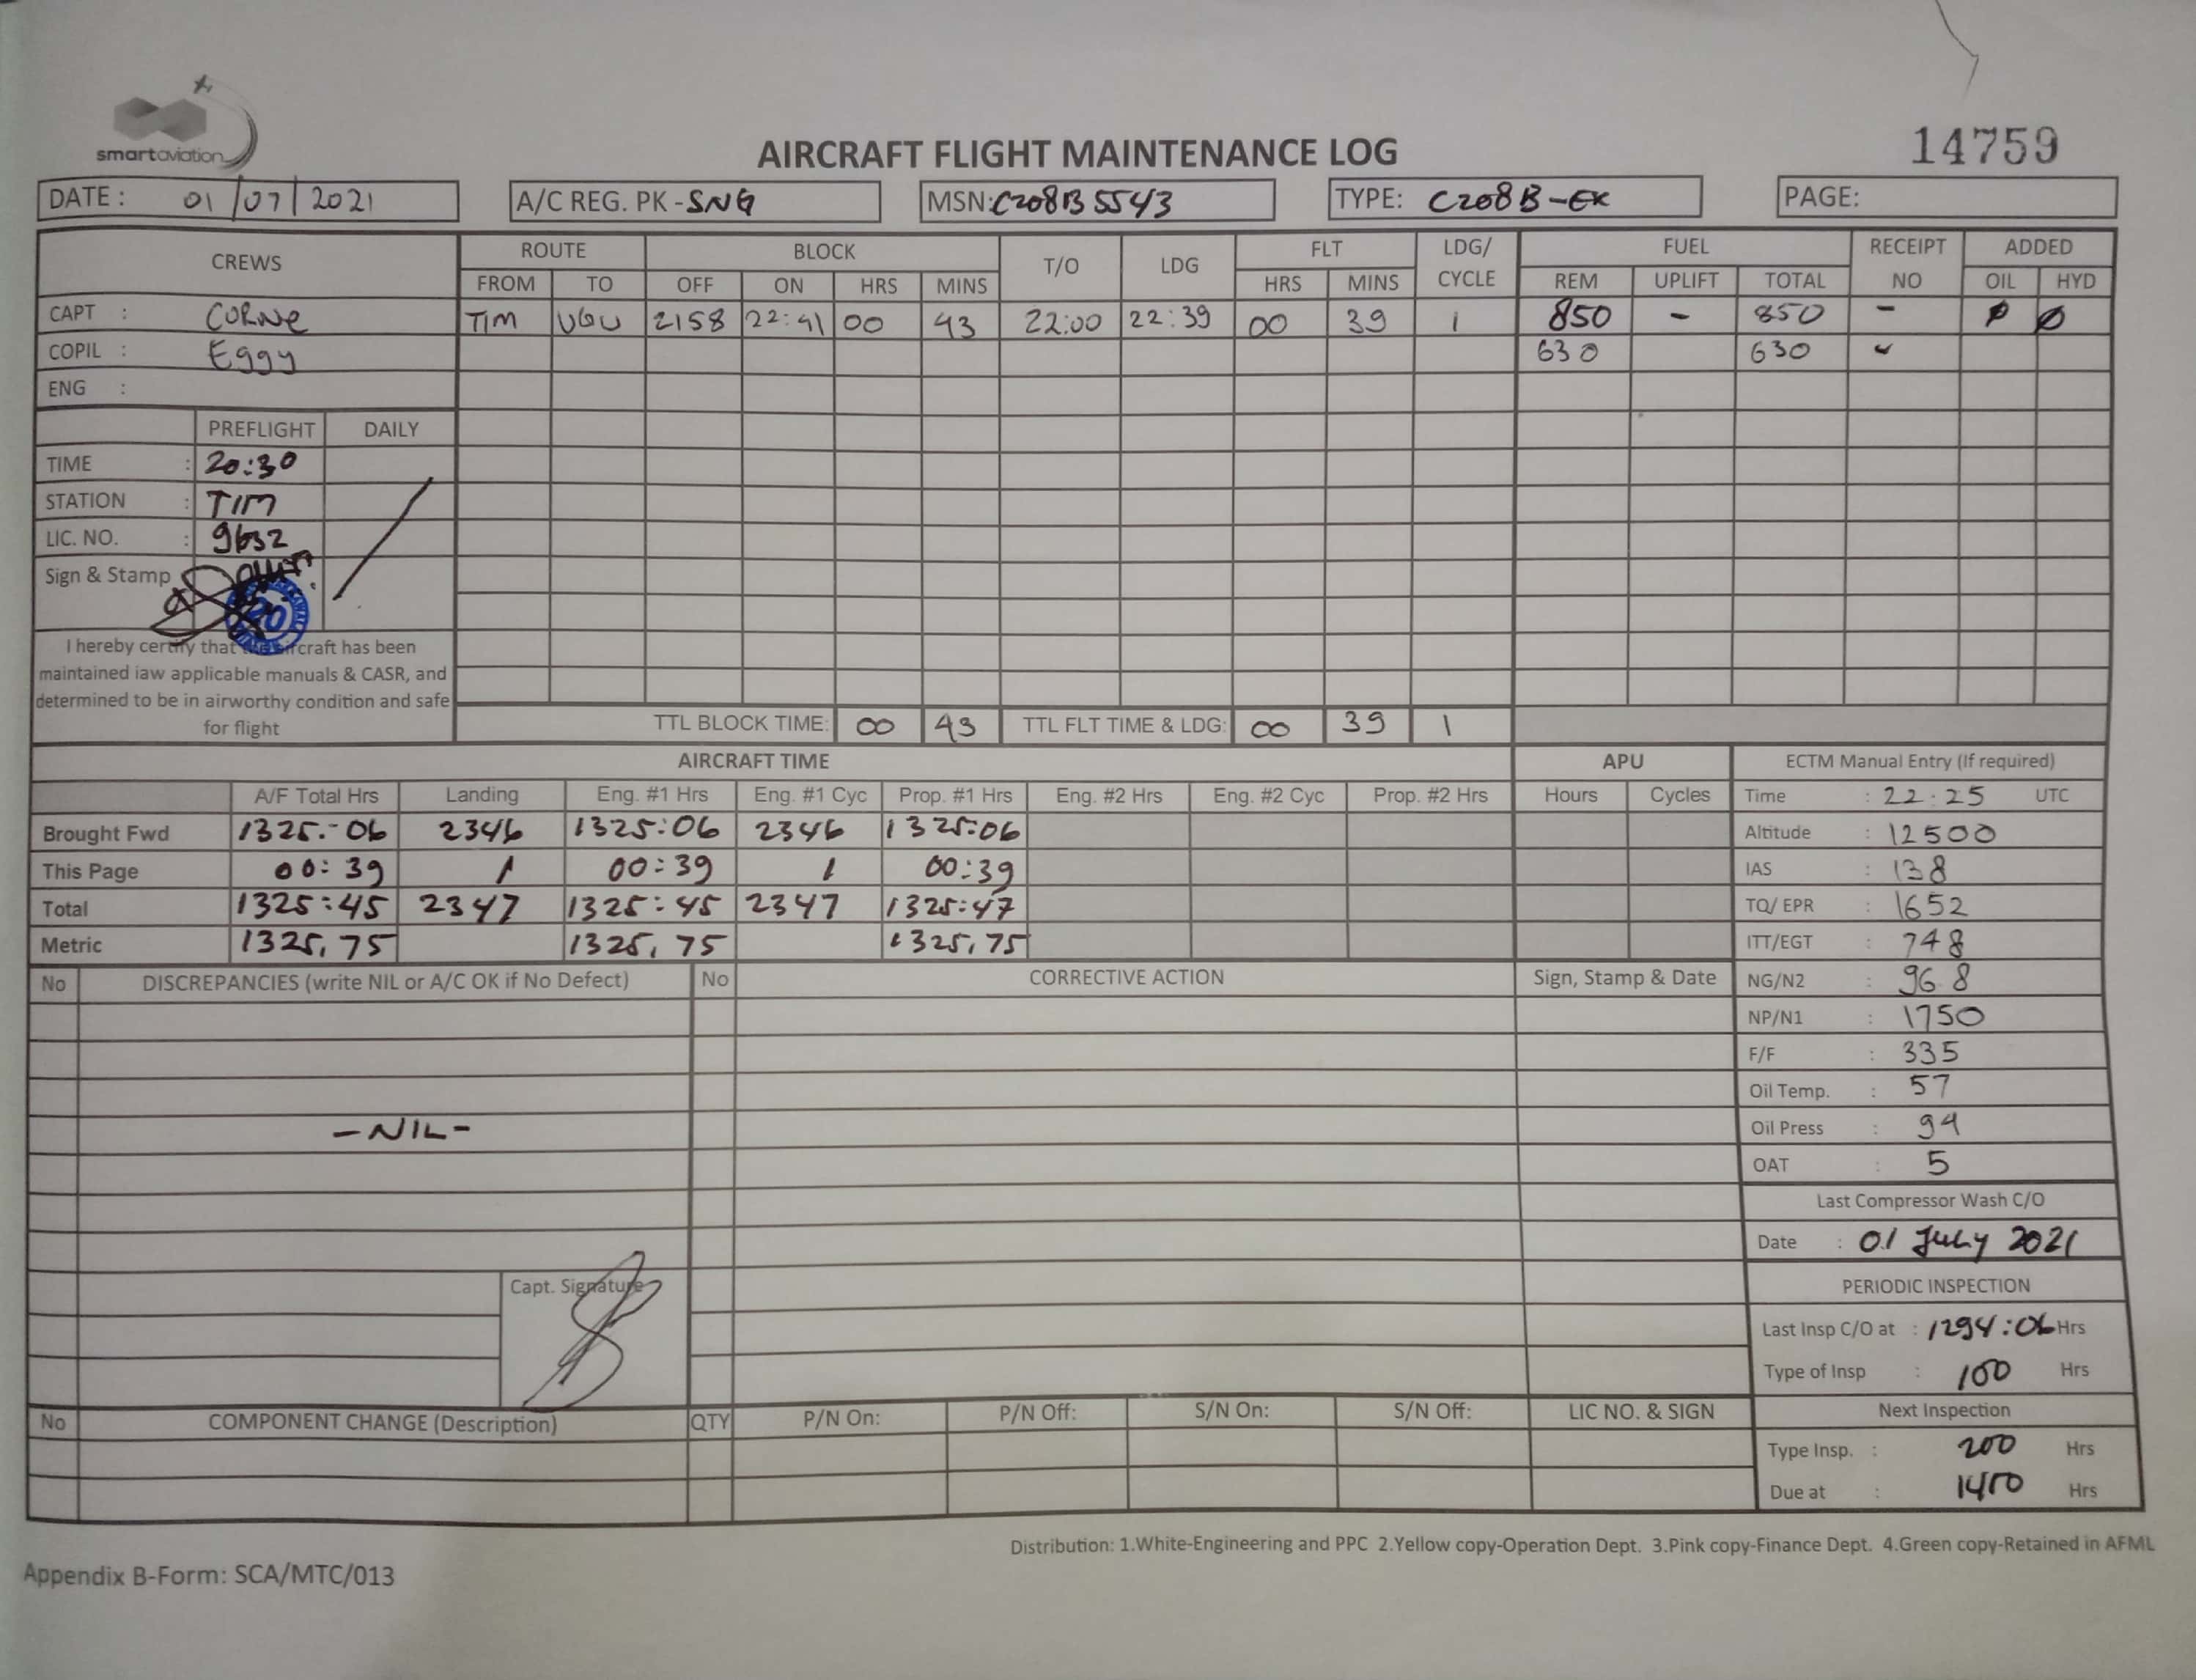 smartaviation
14759
AIRCRAFT FLIGHT MAINTENANCE LOG
DATE : 01/07/2021 A/C REG. PK - SNG MSN: C208B 5543 TYPE: C208B-EX PAGE:
CREWS ROUTE BLOCK T/O LDG FLT LDG/ CYCLE FUEL RECEIPT NO ADDED
FROM TO OFF ON HRS MINS HRS MINS REM UPLIFT TOTAL OIL HYD
CAPT : CORNE TIM UGU 2158 22:41 00 43 22:00 22:39 00 39 1 850 - 850 - Ø Ø
COPIL : Eggy 630 630 -
ENG :
PREFLIGHT DAILY
TIME : 20:30
STATION : TIM
LIC. NO. : 9632
Sign & Stamp
20
I hereby certify that the aircraft has been
maintained iaw applicable manuals & CASR, and
determined to be in airworthy condition and safe
for flight
TTL BLOCK TIME: 00 43 TTL FLT TIME & LDG: 00 39 1
AIRCRAFT TIME APU ECTM Manual Entry (If required)
A/F Total Hrs Landing Eng. #1 Hrs Eng. #1 Cyc Prop. #1 Hrs Eng. #2 Hrs Eng. #2 Cyc Prop. #2 Hrs Hours Cycles Time : 22:25 UTC
Brought Fwd 1325:06 2346 1325:06 2346 1325:06 Altitude : 12500
This Page 00:39 1 00:39 1 00:39 IAS : 138
Total 1325:45 2347 1325:45 2347 1325:47 TQ/ EPR : 1652
Metric 1325,75 1325,75 1325,75 ITT/EGT : 748
No DISCREPANCIES (write NIL or A/C OK if No Defect) No CORRECTIVE ACTION Sign, Stamp & Date NG/N2 : 96.8
NP/N1 : 1750
F/F : 335
Oil Temp. : 57
- NIL - Oil Press : 94
OAT : 5
Last Compressor Wash C/O
Date : 01 July 2021
Capt. Signature PERIODIC INSPECTION
Last Insp C/O at : 1294:06 Hrs
Type of Insp : 100 Hrs
No COMPONENT CHANGE (Description) QTY P/N On: P/N Off: S/N On: S/N Off: LIC NO. & SIGN Next Inspection
Type Insp. : 200 Hrs
Due at : 1450 Hrs
Distribution: 1.White-Engineering and PPC 2.Yellow copy-Operation Dept. 3.Pink copy-Finance Dept. 4.Green copy-Retained in AFML
Appendix B-Form: SCA/MTC/013